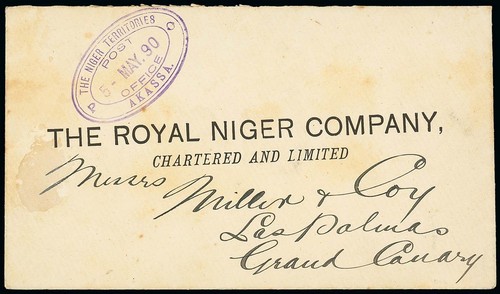 THE NIGER TERRITORIES
POST
5- MAY. 90
OFFICE
AKASSA.
P O
THE ROYAL NIGER COMPANY,
CHARTERED AND LIMITED
Messrs Miller & Coy
Las Palmas
Grand Canary